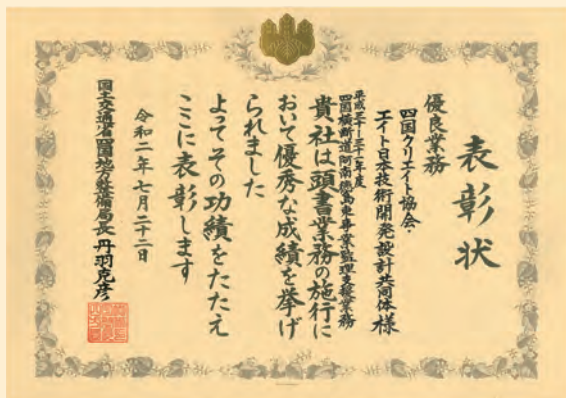 表彰状
優良業務
四国クリエイト協会・
エイト日本技術開発設計共同体 様
平成三十~三十一年度
四国横断道阿南徳島東事業監理支援業務
貴社は頭書業務の施行に
おいて優秀な成績を挙げ
られました
よってその功績をたたえ
ここに表彰します
令和二年七月二十二日
国土交通省四国地方整備局長 丹羽克彦